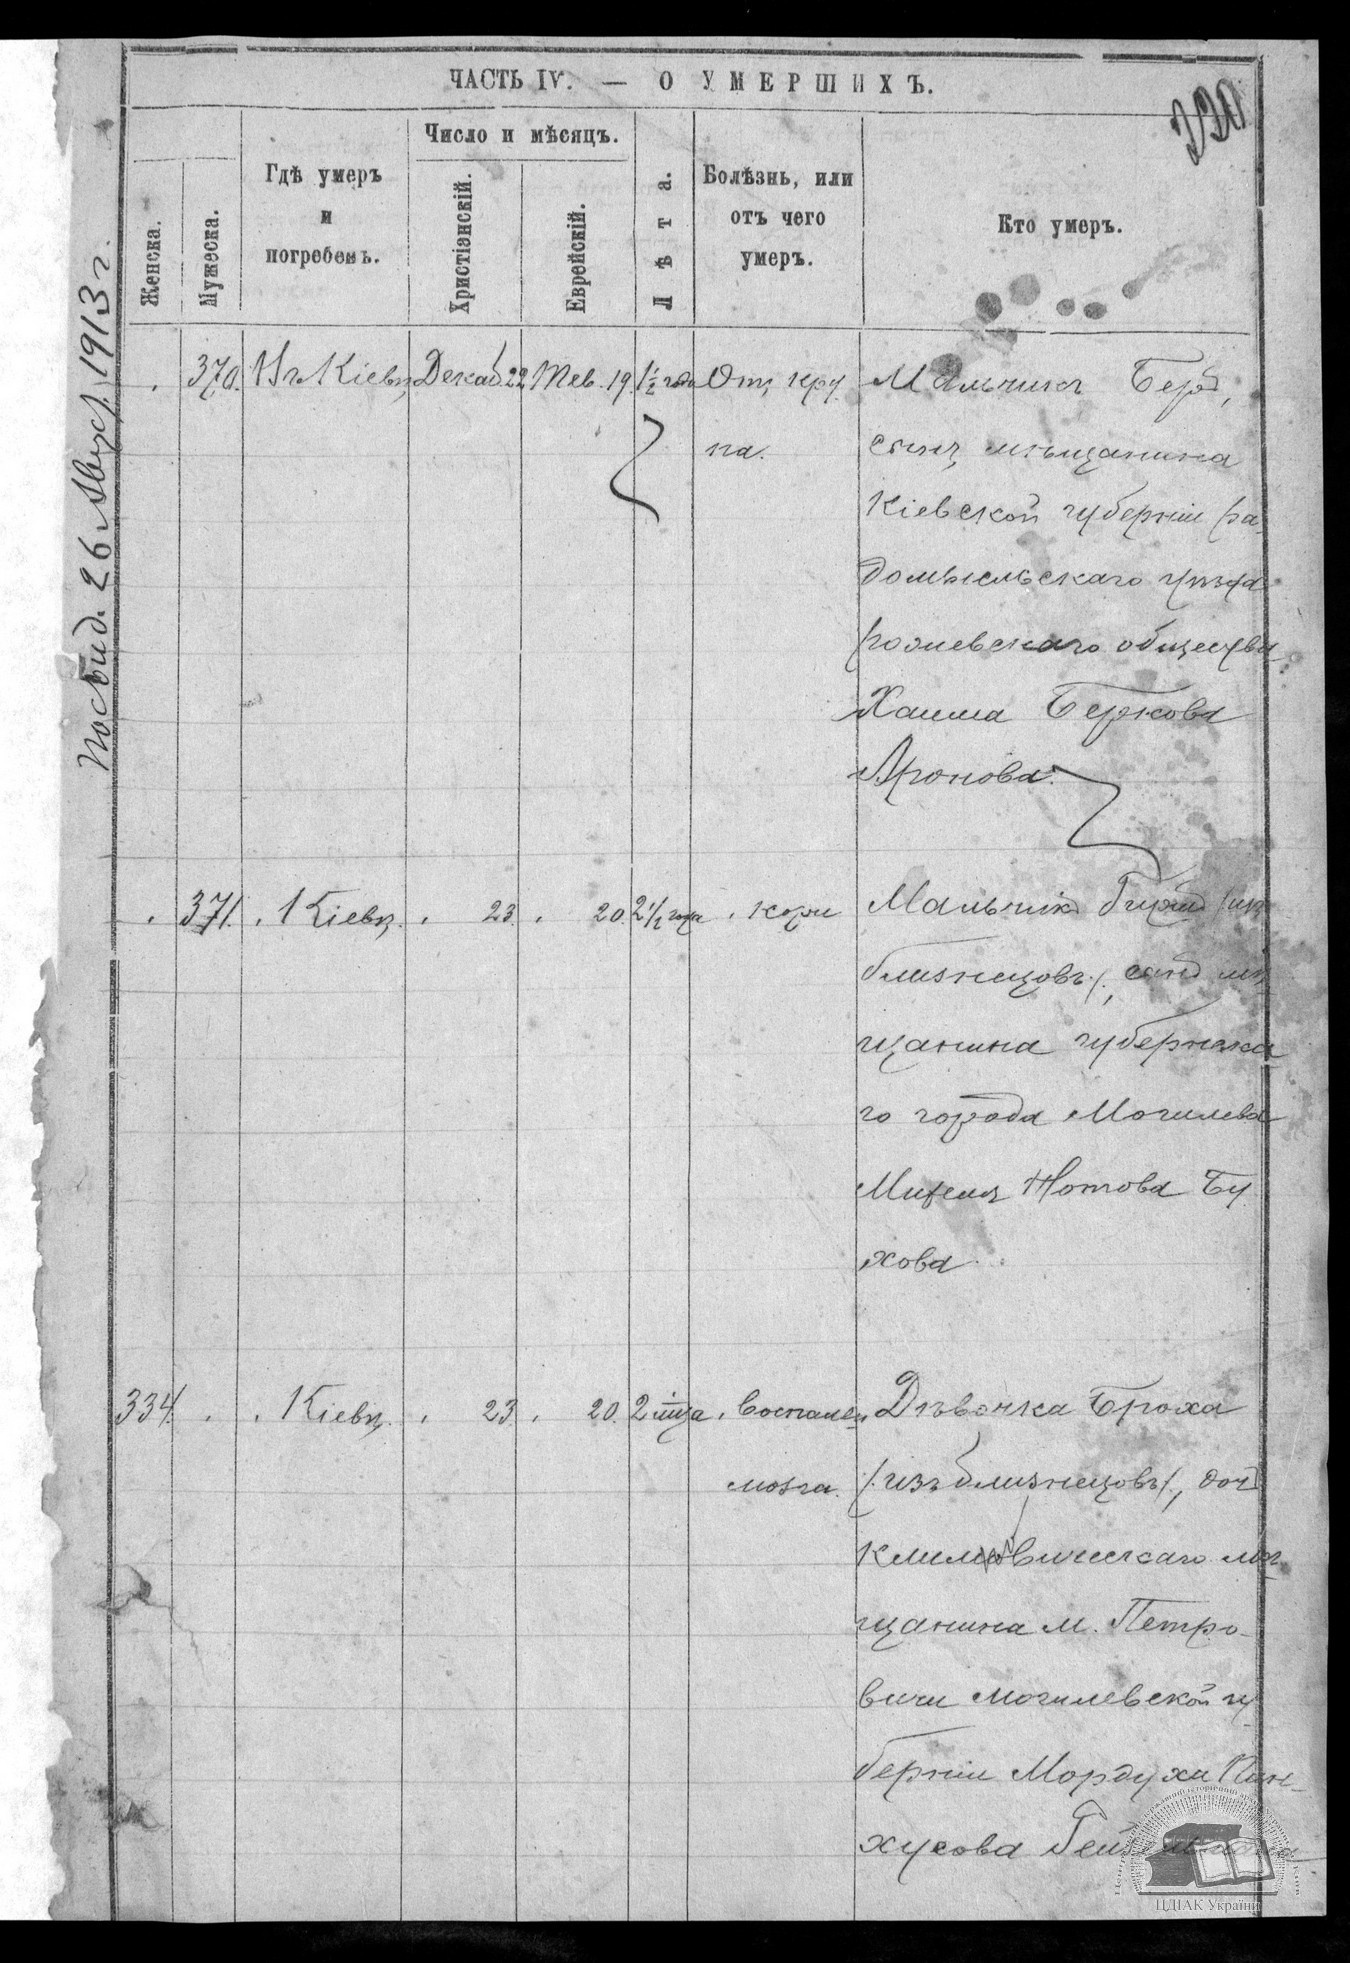 ЧАСТЬ IV. — О УМЕРШИХЪ.
Женска.
Мужеска.
Гдѣ умеръ
и
погребенъ.
Число и мѣсяцъ.
Христіэнскій.
Еврейскій.
Лѣта.
Болѣзнь, или
отъ чего
умеръ.
Кто умеръ.
Посвид. 26 Август. 1913 г.
370. Въ Кіевѣ Декаб 22 Тев. 19. 1½ года Отъ кру
па.
Мальчикъ Беръ,
сынъ мѣщанина
Кіевской губерніи Ра
домысльскаго уѣзда
Рожевскаго общества
Хаима Беркова
Аронова.
371. Кіевѣ. 23. 20. 2½ года кори
Мальчикъ (изъ
близнецовъ), сынъ мѣ
щанина губернска
го города Могилева
Нотова Бу
хова
334. Кіевѣ. 23. 20. 2 м-ца Воспален
мозга.
Дѣвочка Броха
(изъ близнецовъ), доч
Климовическаго мѣ
щанина м. Петро-
вичи Могилевской гу
берніи Мордуха Пин-
хусова
ЦДІАК України